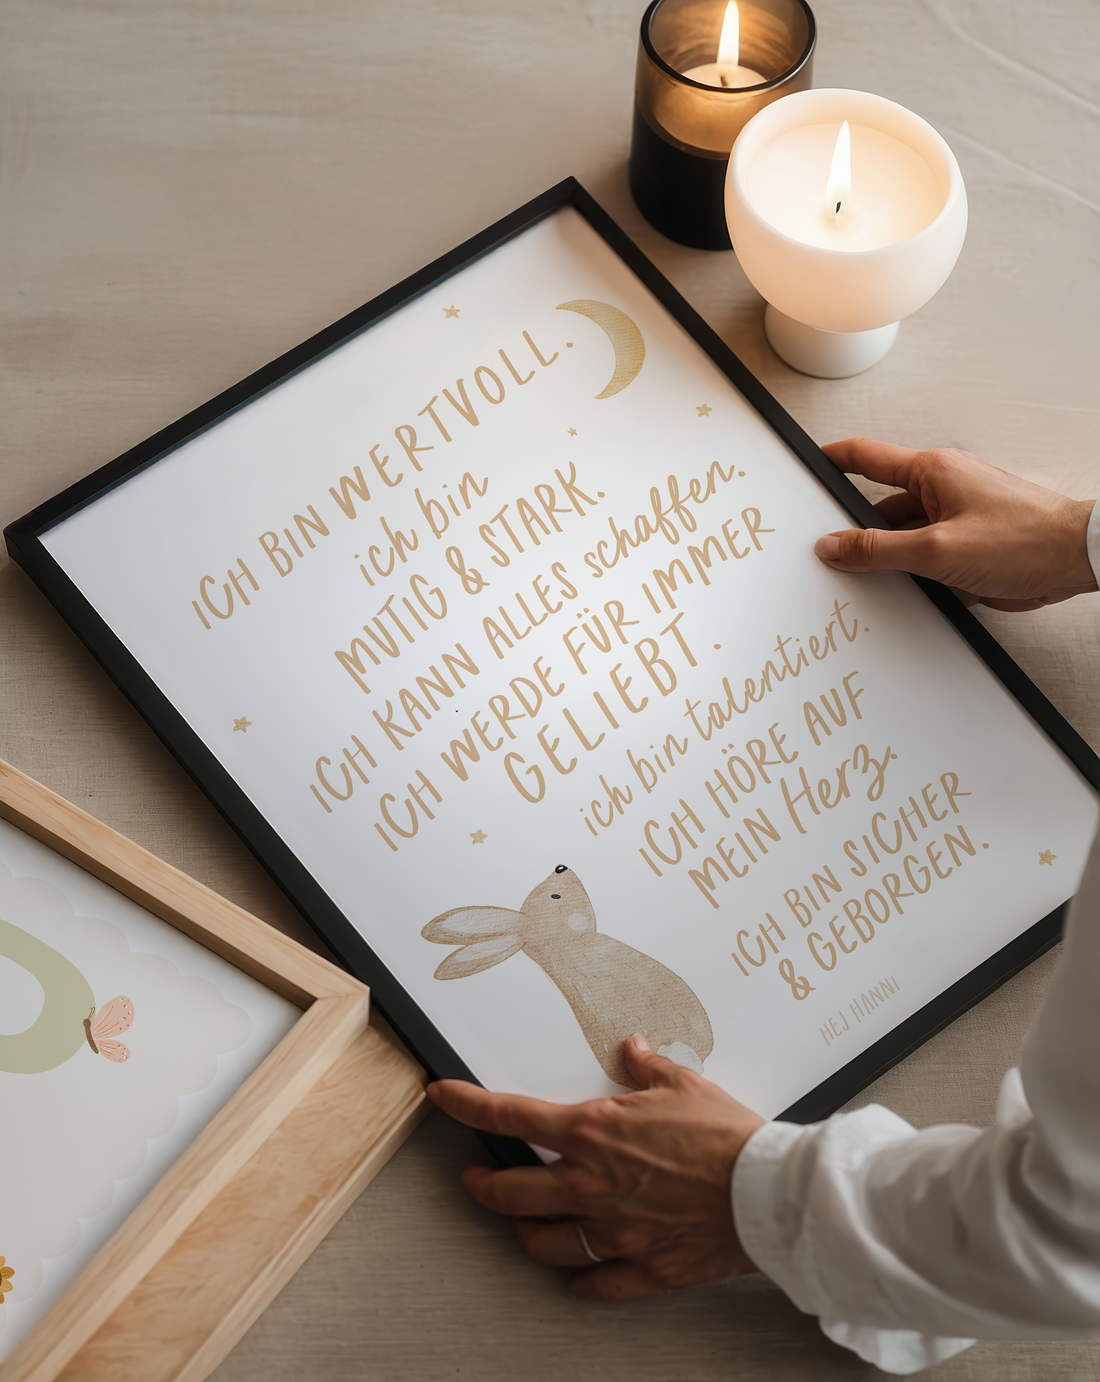 ICH BIN WERTVOLL.
ich bin
MUTIG & STARK.
ICH KANN ALLES schaffen.
ICH WERDE FÜR IMMER
GELIEBT.
ich bin talentiert.
ICH HÖRE AUF
MEIN Herz.
ICH BIN SICHER
& GEBORGEN.
HEJ HANNI